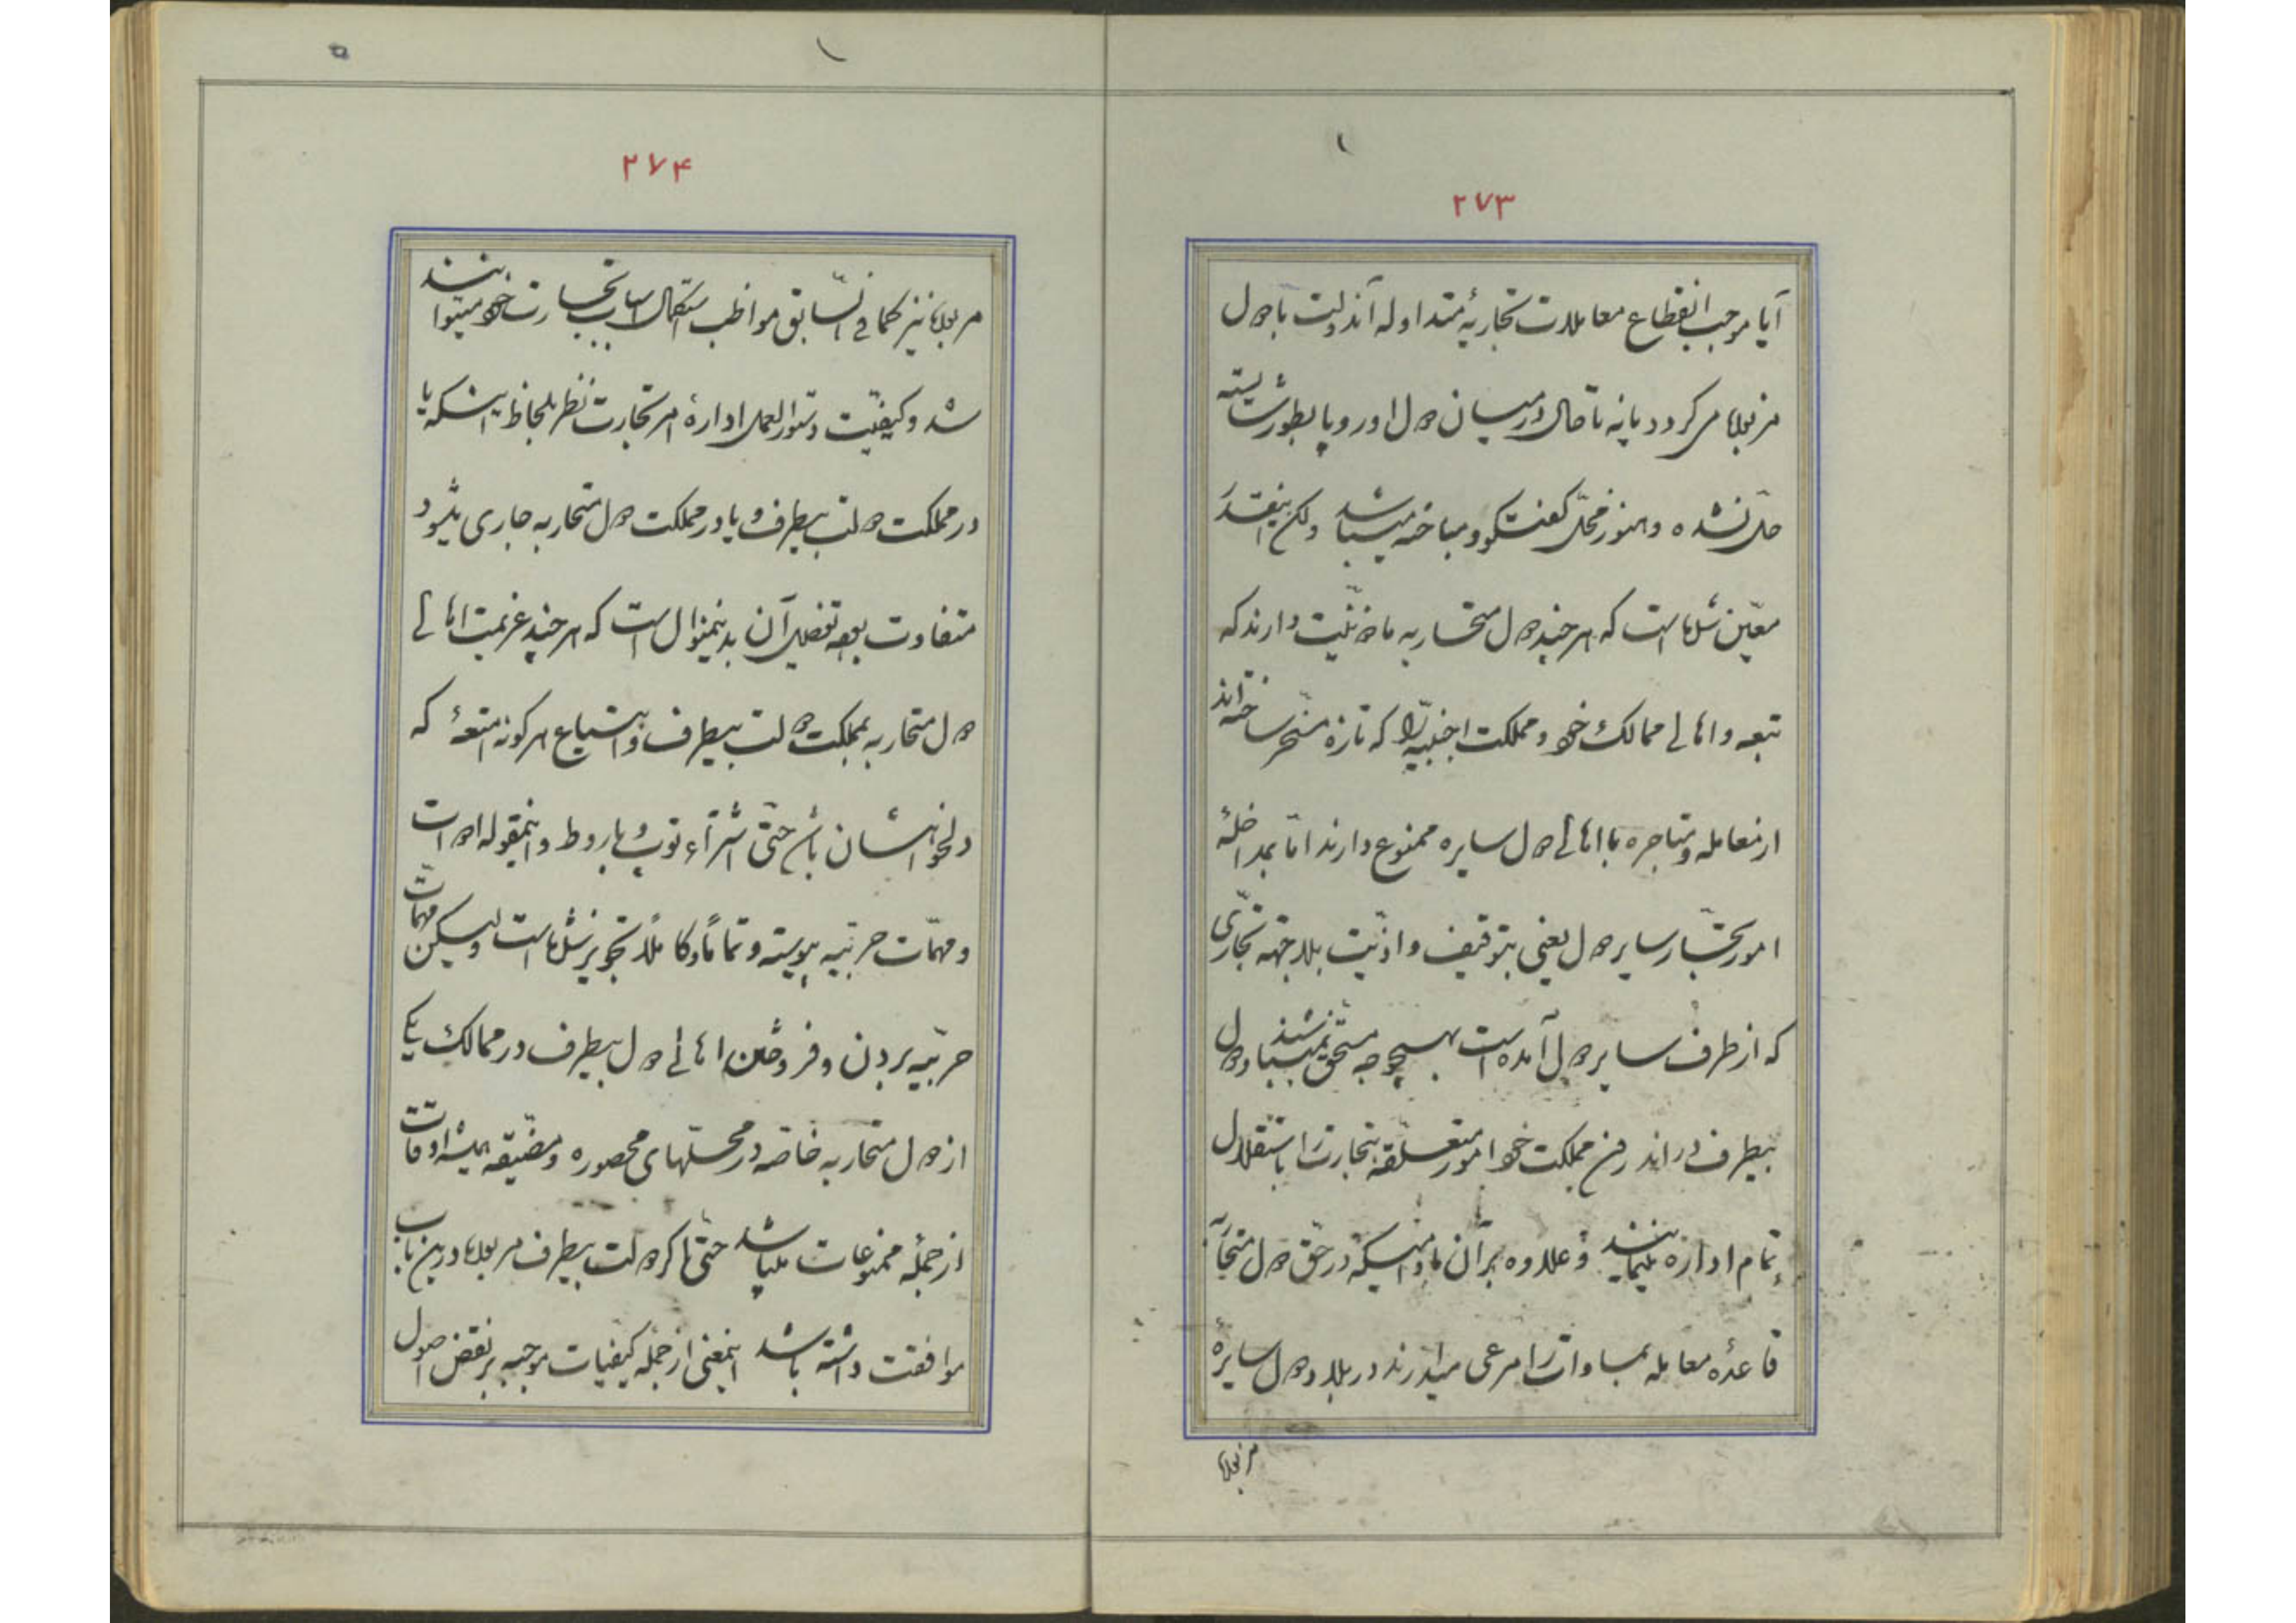 ۲۷۳
آیا موجب انقطاع معاملات تجاریهٔ متداوله آندولت با دول
مزبوره میگردد یا نه تا حال در میان دول اوروپا بطور شایسته
حل نشده و هنوز محل گفتگو و مباحثه میباشد ولکن اینقدر
معین شده است که هر چند دول متحاربه ماذونیت دارند که
تبعه و اهالی ممالک خود و مملکت اجنبیه را که تازه مسخر ساخته‌اند
از معامله و متاجره با اهالی دول سایره ممنوع دارند اما بمداخلهٔ
امور تجار سایر دول یعنی بتوقیف و اذیت بلا جهة تجاری
که از طرف سایر دول آمده است بهیچوجه مستحق نمیباشند و دول
بیطرف در اندرون مملکت خود امور متعلقه بتجارت را باستقلال
تمام اداره مینمایند و علاوه بر آن مادامیکه در حق دول متحاربه
قاعدهٔ معامله بمساوات را مرعی میدارند در بلاد دول سایرهٔ
مزبوره
۲۷۴
مزبوره نیز کما فی السابق مواظب استکمال اسباب تجارت خود میتوانند
شد و کیفیت دستورالعمل ادارهٔ امر تجارت نظر بلحاظ اینکه یا
در مملکت دولت بیطرف و یا در مملکت دول متحاربه جاری میشود
متفاوت بوده تفصیل آن بدینمنوال است که هر چند عزیمت اهالی
دول متحاربه بمملکت دولت بیطرف و ابتیاع هر گونه امتعهٔ که
دلخواهشان باشد حتی اشتراء توپ و باروط و اینمقوله ادوات
و مهمات حربیه پیوسته و تماماً و کاملاً تجویز شده است ولیکن مهمات
حربیه بردن و فروختن اهالی دول بیطرف در ممالک یکی
از دول متحاربه خاصه در محلهای محصوره و مضیقه همیشه اوقات
از جملهٔ ممنوعات میباشد حتی اگر دولت بیطرف مزبوره درین باب
موافقت داشته باشد اینمعنی از جمله کیفیات موجبه بر نقض اصول